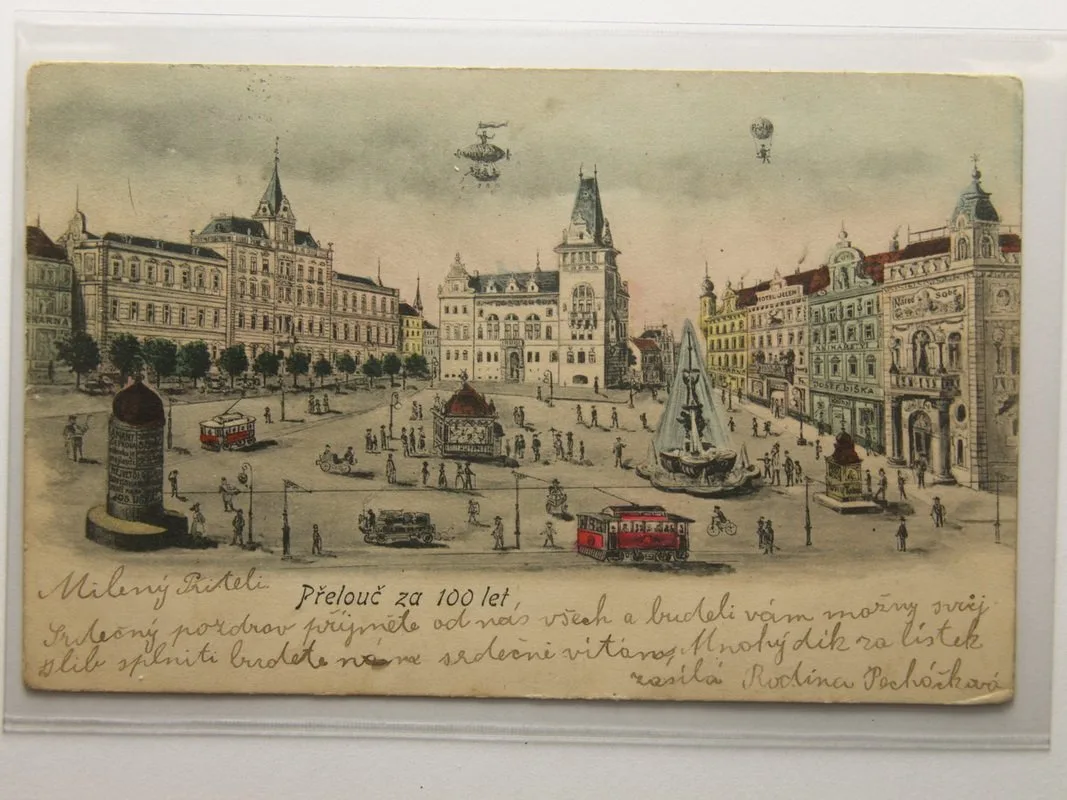 HOTEL JELEN
Národ Sobě
JOSEF LIŠKA
Přelouč za 100 let
Milený Příteli
Srdečný pozdrav přijměte od nás všech a budeli vám možny svůj
slib splniti budete nám srdečně vítány, Mnohý dík za lístek
zasílá Rodina Pecháčková